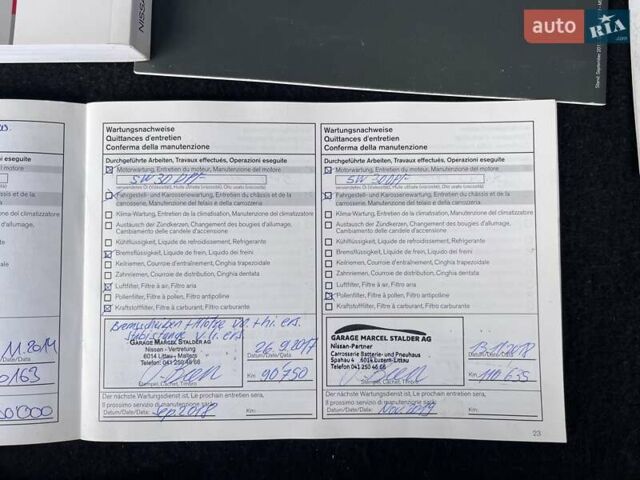 auto RIA .com
NISSAN
Stand: September 201
Wartungsnachweise
Quittances d'entretien
Conferma della manutenzione
Durchgeführte Arbeiten, Travaux effectués, Operazioni eseguite
Motorwartung, Entretien du moteur, Manutenzione del motore
5W30 DPF
verwendetes Öl (Viskosität), Huile utilisée (viscosité), Olio usato (viscosità)
Fahrgestell- und Karosseriewartung, Entretien du châssis et de la
carrosserie, Manutenzione del telaio e della carrozzeria
Klima-Wartung, Entretien de la climatisation, Manutenzione del climatizzatore
Austausch der Zündkerzen, Changement des bougies d'allumage,
Cambiamento delle candele d'accensione
Kühlflüssigkeit, Liquide de refroidissement, Refrigerante
Bremsflüssigkeit, Liquide de frein, Liquido dei freini
Keilriemen, Courroie d'entraînement, Cinghia trapezoidale
Zahnriemen, Courroie de distribution, Cinghia dentata
Luftfilter, Filtre à air, Filtro aria
Pollenfilter, Filtre à pollen, Filtro antipolline
Kraftstofffilter, Filtre à carburant, Filtro carburante
Bremsscheiben + Klötze vo. + hi. ers.
Stabistange v. li. ers.
GARAGE MARCEL STALDER AG
Nissan - Vertretung
6014 Littau - Malters
Telefon 041 250 46 66
Stempel, Cachet, Timbro
26.9.2017
Datum/Date/Data
Km: 90 750
Der nächste Wartungsdienst ist, Le prochain entretien sera,
Il prossimo servizio di manutenzione sarà:
Datum/Date/Data: Sep. 2018
Km:
Wartungsnachweise
Quittances d'entretien
Conferma della manutenzione
Durchgeführte Arbeiten, Travaux effectués, Operazioni eseguite
Motorwartung, Entretien du moteur, Manutenzione del motore
5W30 DPF
verwendetes Öl (Viskosität), Huile utilisée (viscosité), Olio usato (viscosità)
Fahrgestell- und Karosseriewartung, Entretien du châssis et de la
carrosserie, Manutenzione del telaio e della carrozzeria
Klima-Wartung, Entretien de la climatisation, Manutenzione del climatizzatore
Austausch der Zündkerzen, Changement des bougies d'allumage,
Cambiamento delle candele d'accensione
Kühlflüssigkeit, Liquide de refroidissement, Refrigerante
Bremsflüssigkeit, Liquide de frein, Liquido dei freini
Keilriemen, Courroie d'entraînement, Cinghia trapezoidale
Zahnriemen, Courroie de distribution, Cinghia dentata
Luftfilter, Filtre à air, Filtro aria
Pollenfilter, Filtre à pollen, Filtro antipolline
Kraftstofffilter, Filtre à carburant, Filtro carburante
GARAGE MARCEL STALDER AG
Nissan-Partner
Carrosserie Batterie- und Pneuhaus
Spahau 4 6014 Luzern-Littau
Telefon 041 250 46 66
Stempel, Cachet, Timbro
13.11.2018
Datum/Date/Data
Km: 110 655
Der nächste Wartungsdienst ist, Le prochain entretien sera,
Il prossimo servizio di manutenzione sarà:
Datum/Date/Data: Nov. 2019
Km:
23